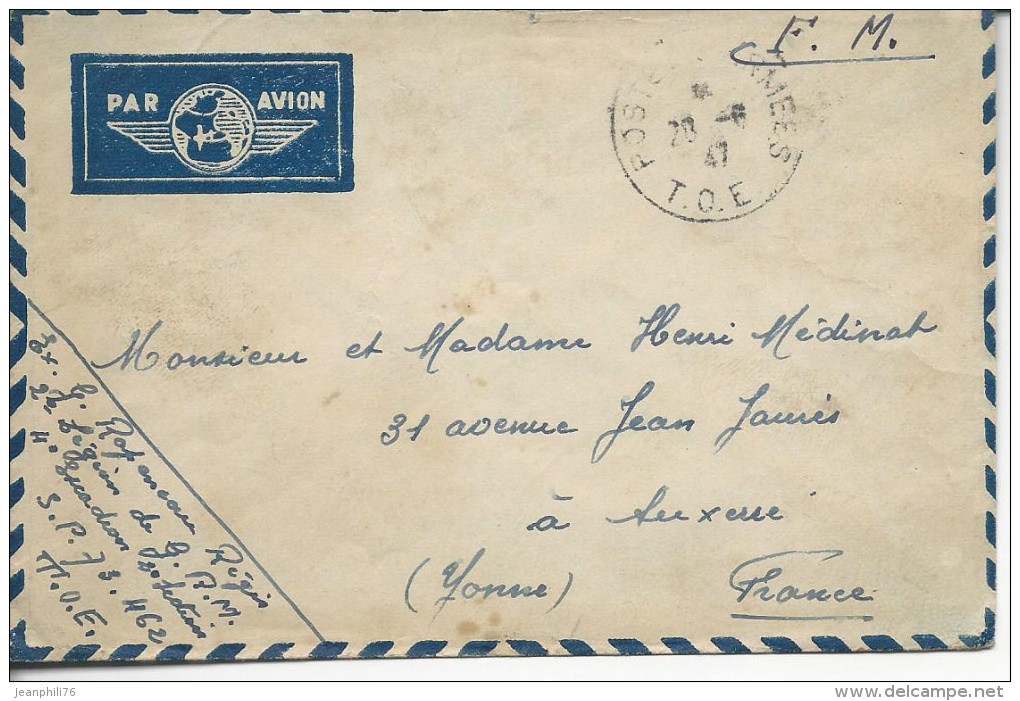 F. M.
PAR AVION
POSTE ARMEES
28
47
T.O.E
Monsieur et Madame Henri Médinat
31 avenue Jean Jaurès
à Auxerre
(Yonne) France
Ex. G. Rapeneau Régis
2e Légion de G. R. M.
4e Escadron 2e Section
S. P. 73.462
T.O.E.
jeanphili76
www.delcampe.net